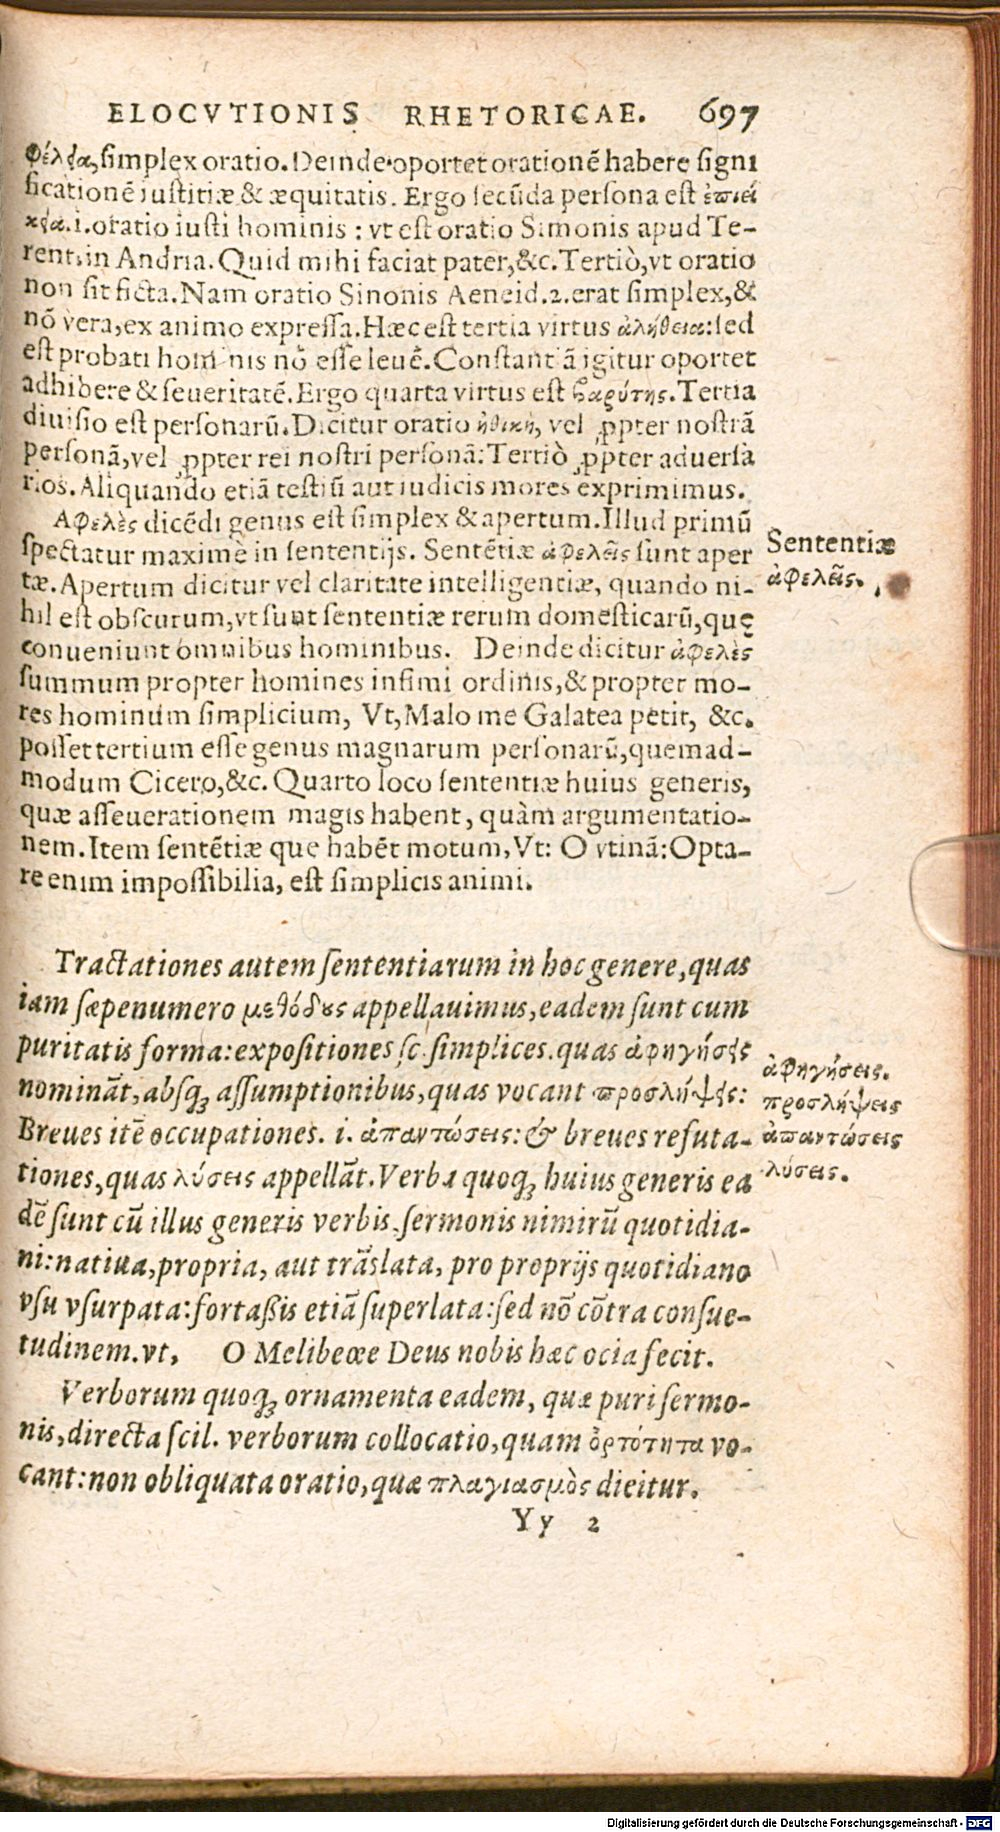 ELOCVTIONIS RHETORICAE. 697
φέλεια, simplex oratio. Deinde oportet orationē habere signi
ficationē iustitiæ & æquitatis. Ergo secūda persona est ἐπιεί
κεια. i. oratio iusti hominis : vt est oratio Simonis apud Te-
rent. in Andria. Quid mihi faciat pater, &c. Tertiò, vt oratio
non sit ficta. Nam oratio Sinonis Aeneid. 2. erat simplex, &
nō vera, ex animo expressa. Hæc est tertia virtus ἀλήθεια: sed
est probati hominis nō esse leuē. Constantiā igitur oportet
adhibere & seueritatē. Ergo quarta virtus est βαρύτης. Tertia
diuisio est personarū. Dicitur oratio ἠθική, vel ꝓpter nostrā
personā, vel ꝓpter rei nostri personā: Tertiò ꝓpter aduersa
rios. Aliquando etiā testiū aut iudicis mores exprimimus.
Αφελὲς dicēdi genus est simplex & apertum. Illud primū
spectatur maximè in sententijs. Sentētiæ ἀφελεῖς sunt aper
tæ. Apertum dicitur vel claritate intelligentiæ, quando ni-
hil est obscurum, vt sunt sententiæ rerum domesticarū, quę
conueniunt omnibus hominibus. Deinde dicitur ἀφελὲς
summum propter homines infimi ordinis, & propter mo-
res hominum simplicium, Vt, Malo me Galatea petit, &c.
posset tertium esse genus magnarum personarū, quemad-
modum Cicero, &c. Quarto loco sententiæ huius generis,
quæ asseuerationem magis habent, quàm argumentatio-
nem. Item sentētiæ que habēt motum, Vt: O vtinā: Opta-
re enim impossibilia, est simplicis animi.
Sententiæ
ἀφελεῖς.
Tractationes autem sententiarum in hoc genere, quas
iam sæpenumero μεθόδους appellauimus, eadem sunt cum
puritatis forma: expositiones sc. simplices. quas ἀφηγήσεις
nomināt, absq; assumptionibus, quas vocant προσλήψεις:
Breues itē occupationes. i. ἀπαντώσεις: & breues refuta-
tiones, quas λύσεις appellāt. Verba quoq; huius generis ea
dē sunt cū illus generis verbis. sermonis nimirū quotidia-
ni: natiua, propria, aut trāslata, pro proprijs quotidiano
vsu vsurpata: fortaßis etiā superlata: sed nō cōtra consue-
tudinem. vt, O Melibeœe Deus nobis hæc ocia fecit.
ἀφηγήσεις.
προσλήψεις
ἀπαντώσεις
λύσεις.
Verborum quoq; ornamenta eadem, quæ puri sermo-
nis, directa scil. verborum collocatio, quam ὀρτότητα vo-
cant: non obliquata oratio, quæ πλαγιασμὸς dicitur.
Yy 2
Digitalisierung gefördert durch die Deutsche Forschungsgemeinschaft - DFG